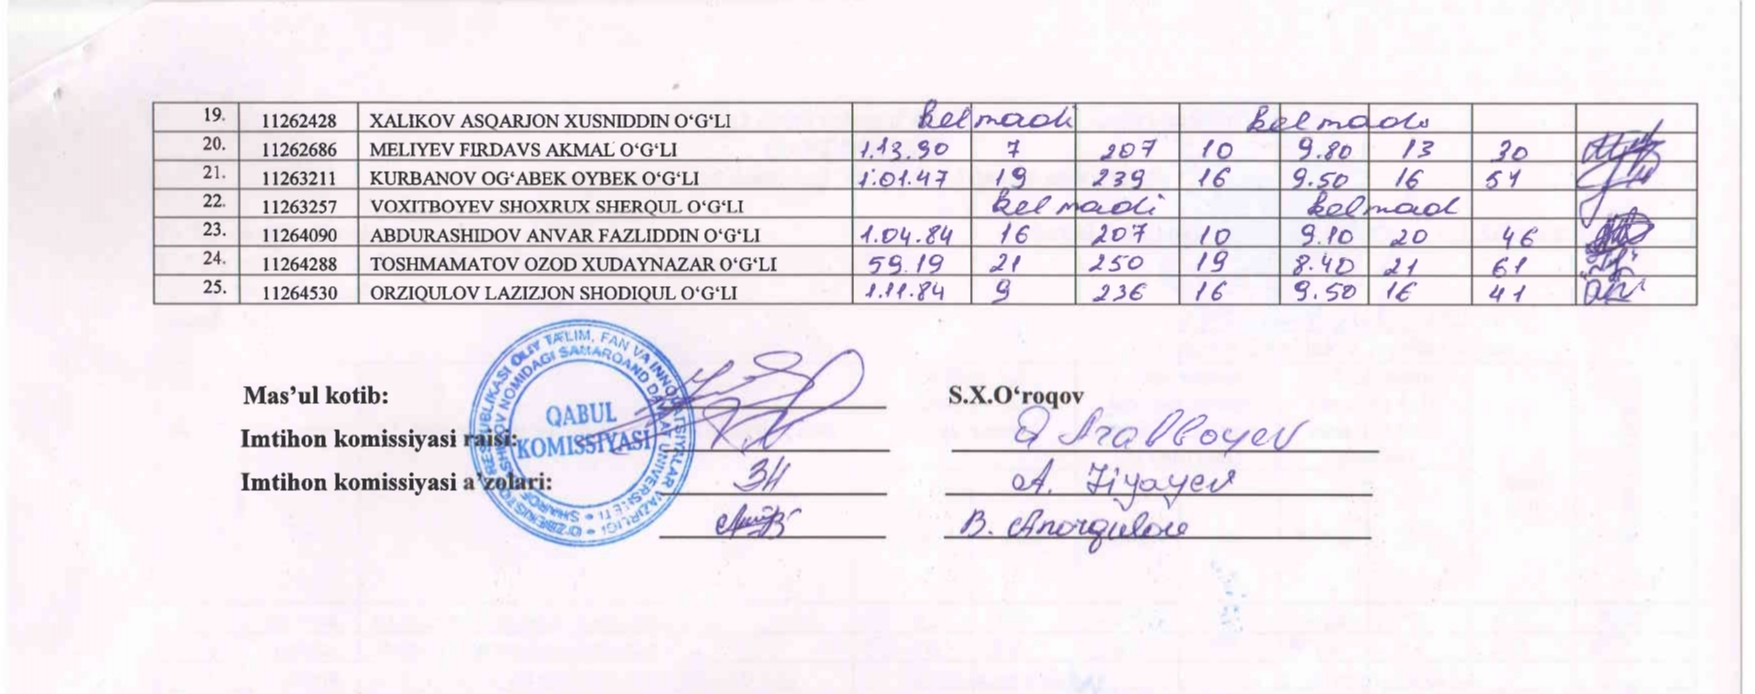 19. 11262428 XALIKOV ASQARJON XUSNIDDIN O‘G‘LI kelmadi kelmadi
20. 11262686 MELIYEV FIRDAVS AKMAL O‘G‘LI 1.13.90 7 207 10 9.80 13 30
21. 11263211 KURBANOV OG‘ABEK OYBEK O‘G‘LI 1.01.47 19 239 16 9.50 16 51
22. 11263257 VOXITBOYEV SHOXRUX SHERQUL O‘G‘LI kelmadi kelmad
23. 11264090 ABDURASHIDOV ANVAR FAZLIDDIN O‘G‘LI 1.04.84 16 207 10 9.10 20 46
24. 11264288 TOSHMAMATOV OZOD XUDAYNAZAR O‘G‘LI 59.19 21 250 19 8.40 21 61
25. 11264530 ORZIQULOV LAZIZJON SHODIQUL O‘G‘LI 1.11.84 9 236 16 9.50 16 41
Mas’ul kotib: S.X.O‘roqov
Imtihon komissiyasi raisi:
Imtihon komissiyasi a’zolari: A. Jiyayev
B. Anorqulov
QABUL
KOMISSIYASI